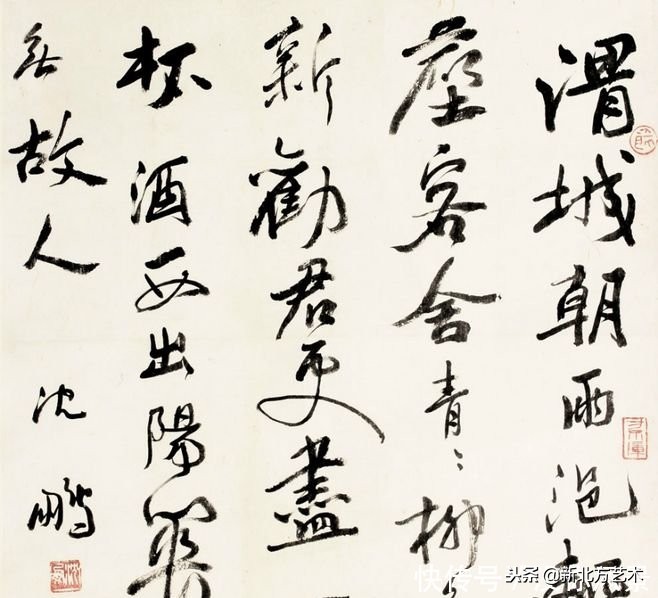 渭城朝雨浥輕
塵客舍青〻柳
新勸君更盡
杯酒西出陽關
無故人
沈鵬
头条@新北方艺术